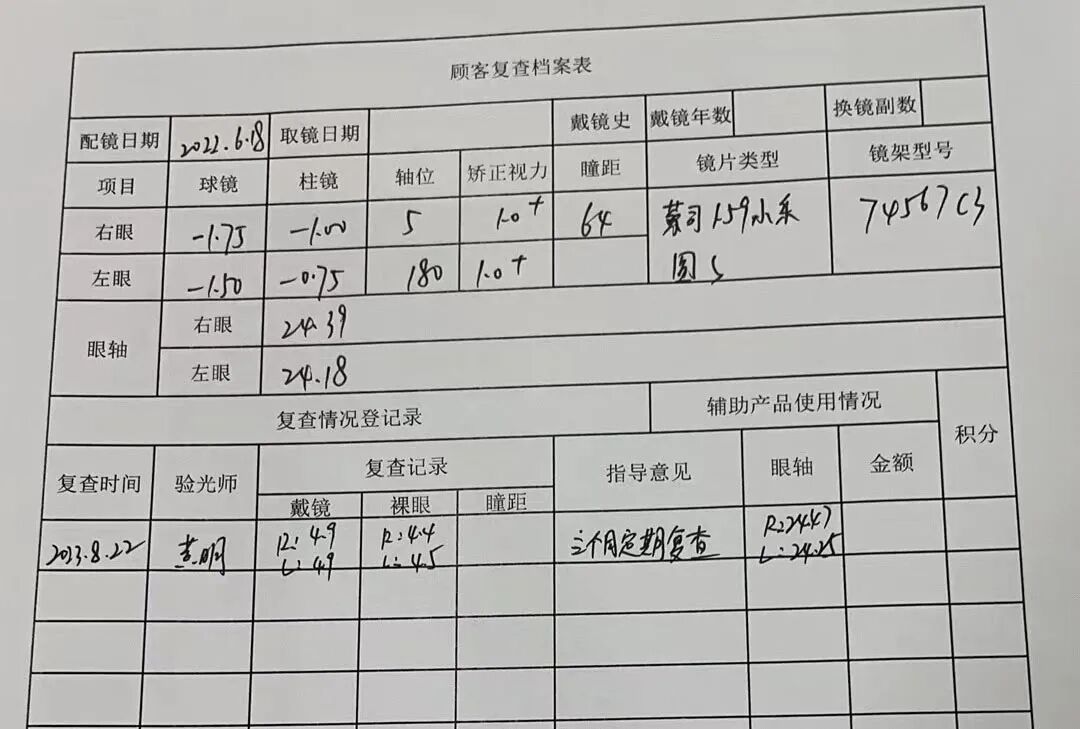 顾客复查档案表
配镜日期 2022.6.18 取镜日期 戴镜史 戴镜年数 换镜副数
项目 球镜 柱镜 轴位 矫正视力 瞳距 镜片类型 镜架型号
右眼 -1.75 -1.00 5 1.0+ 64 蔡司1.59小乐 74567C3
左眼 -1.50 -0.75 180 1.0+ 圆
眼轴 右眼 24.39
左眼 24.18
复查情况登记录 辅助产品使用情况 积分
复查时间 验光师 复查记录 指导意见 眼轴 金额
戴镜 裸眼 瞳距
2023.8.22 R:4.9 R:4.4 三个月定期复查 R:24.47
L:4.9 L:4.5 L:24.25